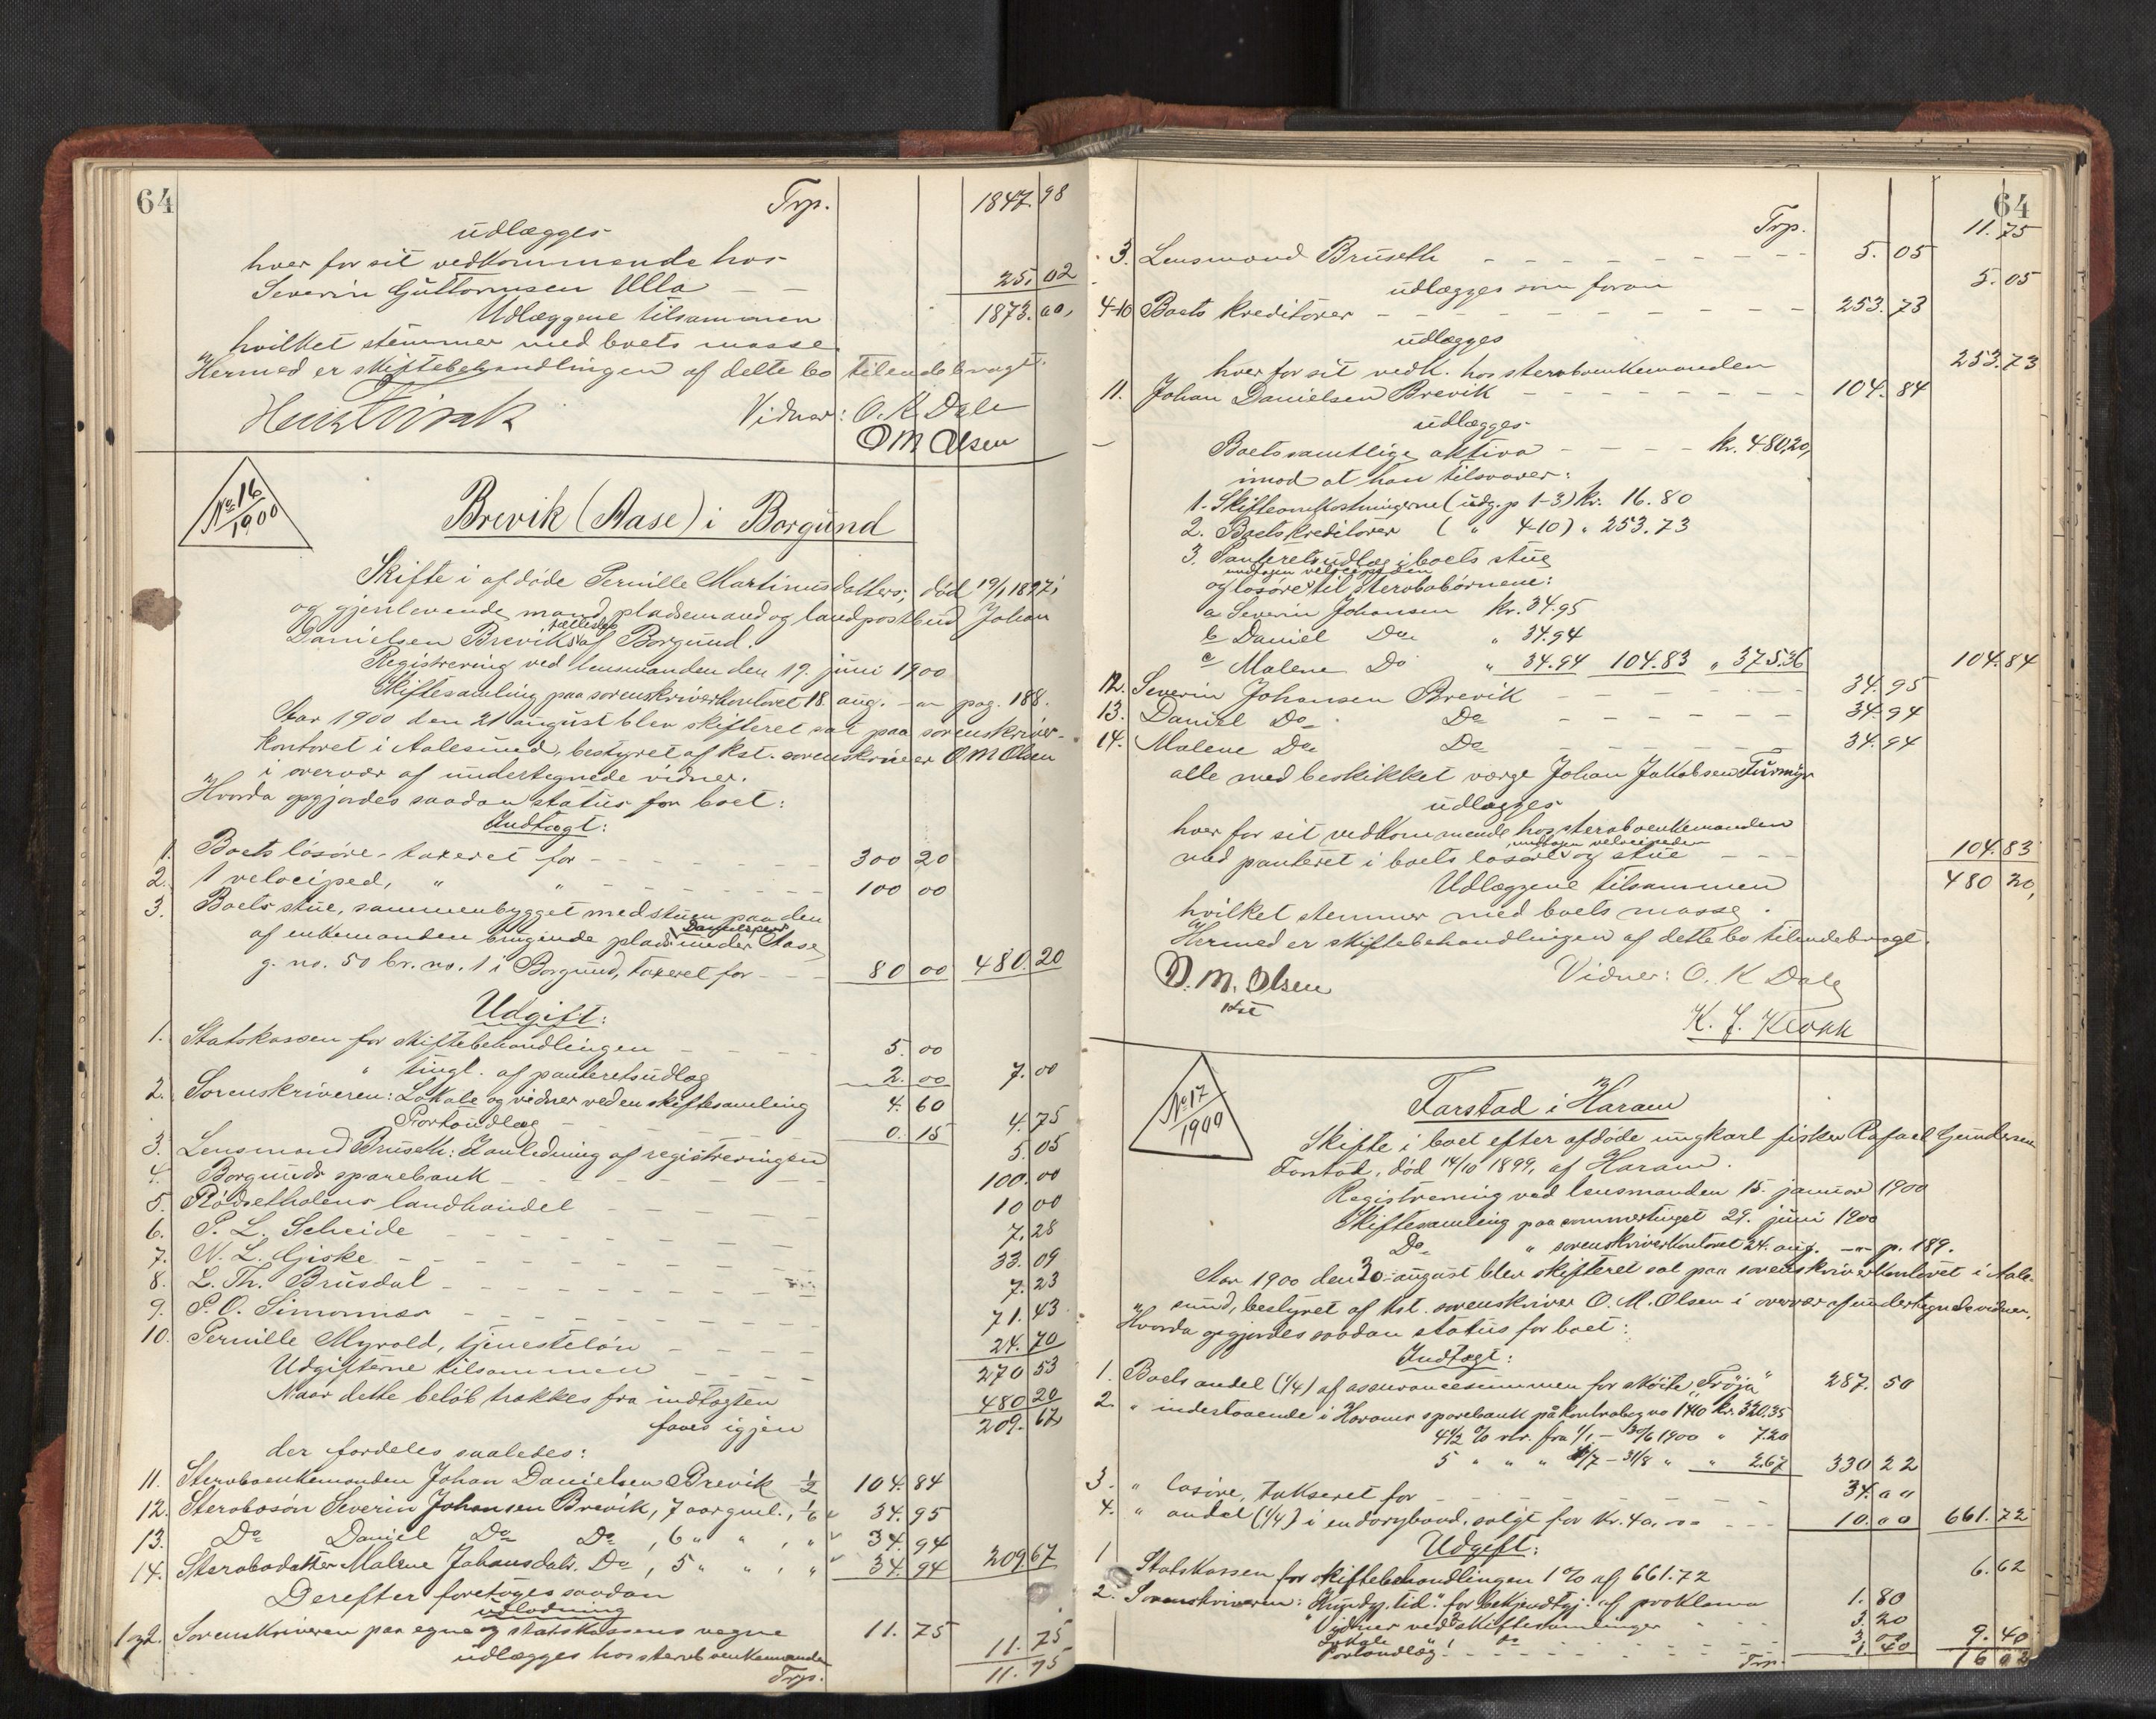 64
Trp. 1847.98
udlægges
hver for sit vedkommende hos
Severin Guttormsen Ulla 25.02
Udlæggene tilsammen 1873.00,
hvilket stemmer med boets masse.
Hermed er skiftebehandlingen af dette bo tilendebragt.
Vidner: O. K. Dale
O M Olsen
No. 16
1900
Brevik (Aase) i Borgund
Skifte i afdøde Pernille Martinusdatters, død 19/1 1897,
og gjenlevende mand, pladsemand og landpostbud Johan
Danielsen Breviks fællesbo af Borgund.
Registrering ved lensmanden den 19. juni 1900
Skiftesamling paa sorenskriverkontoret 18. aug. — pag. 188.
Aar 1900 den 21 august blev skifteret sat paa sorenskriver-
kontoret i Aalesund, bestyret af kst. sorenskriver O M Olsen
i overvær af undertegnede vidner.
Hvorda opgjordes saadan status for boet:
Indtægt:
1. Boets løsøre, taxeret for 300 20
2. 1 velociped, " " 100 00
3. Boets stue, sammenbygget med stuen paa den
af enkemanden brugende plads under Aase
g. no. 50 br. no. 1 i Borgund, taxeret for 80 00 480.20
Udgift:
1. Statskassen for skiftebehandlingen 5.00
" tingl. af panteretsudlæg 2.00 7.00
2. Sorenskriveren: Lokale og vidner ved en skiftesamling 4.60
Portoudlæg 0.15 4.75
3. Lensmand Bruseth: I anledning af registreringen 5.05
4. Borgunds sparebank 100.00
5. Rødsetholens landhandel 10 00
6. P. L. Scheide 7.28
7. N. L. Giske 33.09
8. L. Th. Brusdal 7.23
9. P. O. Simonnes 71.43
10. Pernille Myrold, tjenesteløn 24.70
Udgifterne tilsammen 270 53
Naar dette beløb trækkes fra indtægten 480 20
faaes igjen 209.67
der fordeles saaledes:
11. Sterboenkemanden Johan Danielsen Brevik 1/2 104.84
12. Sterbosøn Severin Johansen Brevik, 7 aar gml., 1/6 34.95
13. Do Daniel Do Do, 6 " " , " 34.94
14. Sterbodatter Malene Johansdatr. Do, 5 " " , " 34.94 209.67
Derefter foretoges saadan
udlodning
1 og 2. Sorenskriveren paa egne og statskassens vegne 11.75
udlægges hos sterboenkemanden 11.75
Trp. 11.75
64
Trp. 11.75
3. Lensmand Bruseth 5.05
udlægges som foran 5.05
4-10 Boets kreditorer 253.73
udlægges
hver for sit vedk. hos sterboenkemanden 253.73
11. Johan Danielsen Brevik 104.84
udlægges
Boets samtlige aktiva kr. 480,20,
imod at han tilsvarer:
1. Skifteomkostningerne (udg. p 1-3) kr. 16.80
2. Boets kreditorer ( " 4-10) " 253.73
3. Panteretsudlæg i boets stue
undtagen velocipeden
og løsøre til sterbobørnene:
a Severin Johansen kr. 34.95
b Daniel Do " 34.94
c Malene Do " 34.94 104.83 " 375.36 104.84
12. Severin Johansen Brevik 34.95
13. Daniel Do Do 34.94
14. Malene Do Do 34.94
alle med beskikket værge Johan Jakobsen Furmyr
udlægges
hver for sit vedkommende hos sterboenkemanden
undtagen velocipeden
med panteret i boets løsøre og stue 104.83
Udlæggene tilsammen 480 20,
hvilket stemmer med boets masse.
Hermed er skiftebehandlingen af dette bo tilendebragt.
O. M. Olsen
kst
Vidner: O. K Dale
K. J. Klokk
No 17
1900
Farstad i Haram
Skifte i boet efter afdøde ungkarl fisker Rafael Gundersen
Farstad, død 14/10 1899, af Haram.
Registrering ved lensmanden 15. januar 1900
Skiftesamling paa sommertinget 29. juni 1900
Do " sorenskriverkontoret 24. aug. — p. 189.
Aar 1900 den 30. august blev skifteret sat paa sorenskriverkontoret i Aale-
sund, bestyret af kst. sorenskriver O. M. Olsen i overvær af undertegnede vidner.
Hvorda opgjordes saadan status for boet:
Indtægt:
1. Boets andel (1/4) af assurancesummen for skøite "Frøja" 287.50
2. " indestaaende i Harams sparebank på kontrabog no 1410 kr. 320.35
4 1/2 % rtr. fra 1/1 - 30/6 1900 " 7.20
5 " " " 1/7 - 31/8 " " 2.67 330 22
3. " løsøre, takseret for 34.00
4. " andel (1/4) i en dorybaad, solgt for kr. 40,00 10.00 661.72
Udgift:
1 Statskassen for skiftebehandlingen 1 % af 661.72 6.62
2. Sorenskriveren: "Kundgj. tid." for bekjendtgj. af proklama 1.80
" Vidner ved 2 skiftesamlinger 3.20
Lokale " " 3.00
Portoudlæg 1.40 9.40
Trp. 16 02